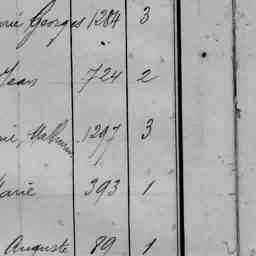 Georges 1284 3
Jean 724 2
1297 3
Marie 393 1
Auguste 89 1